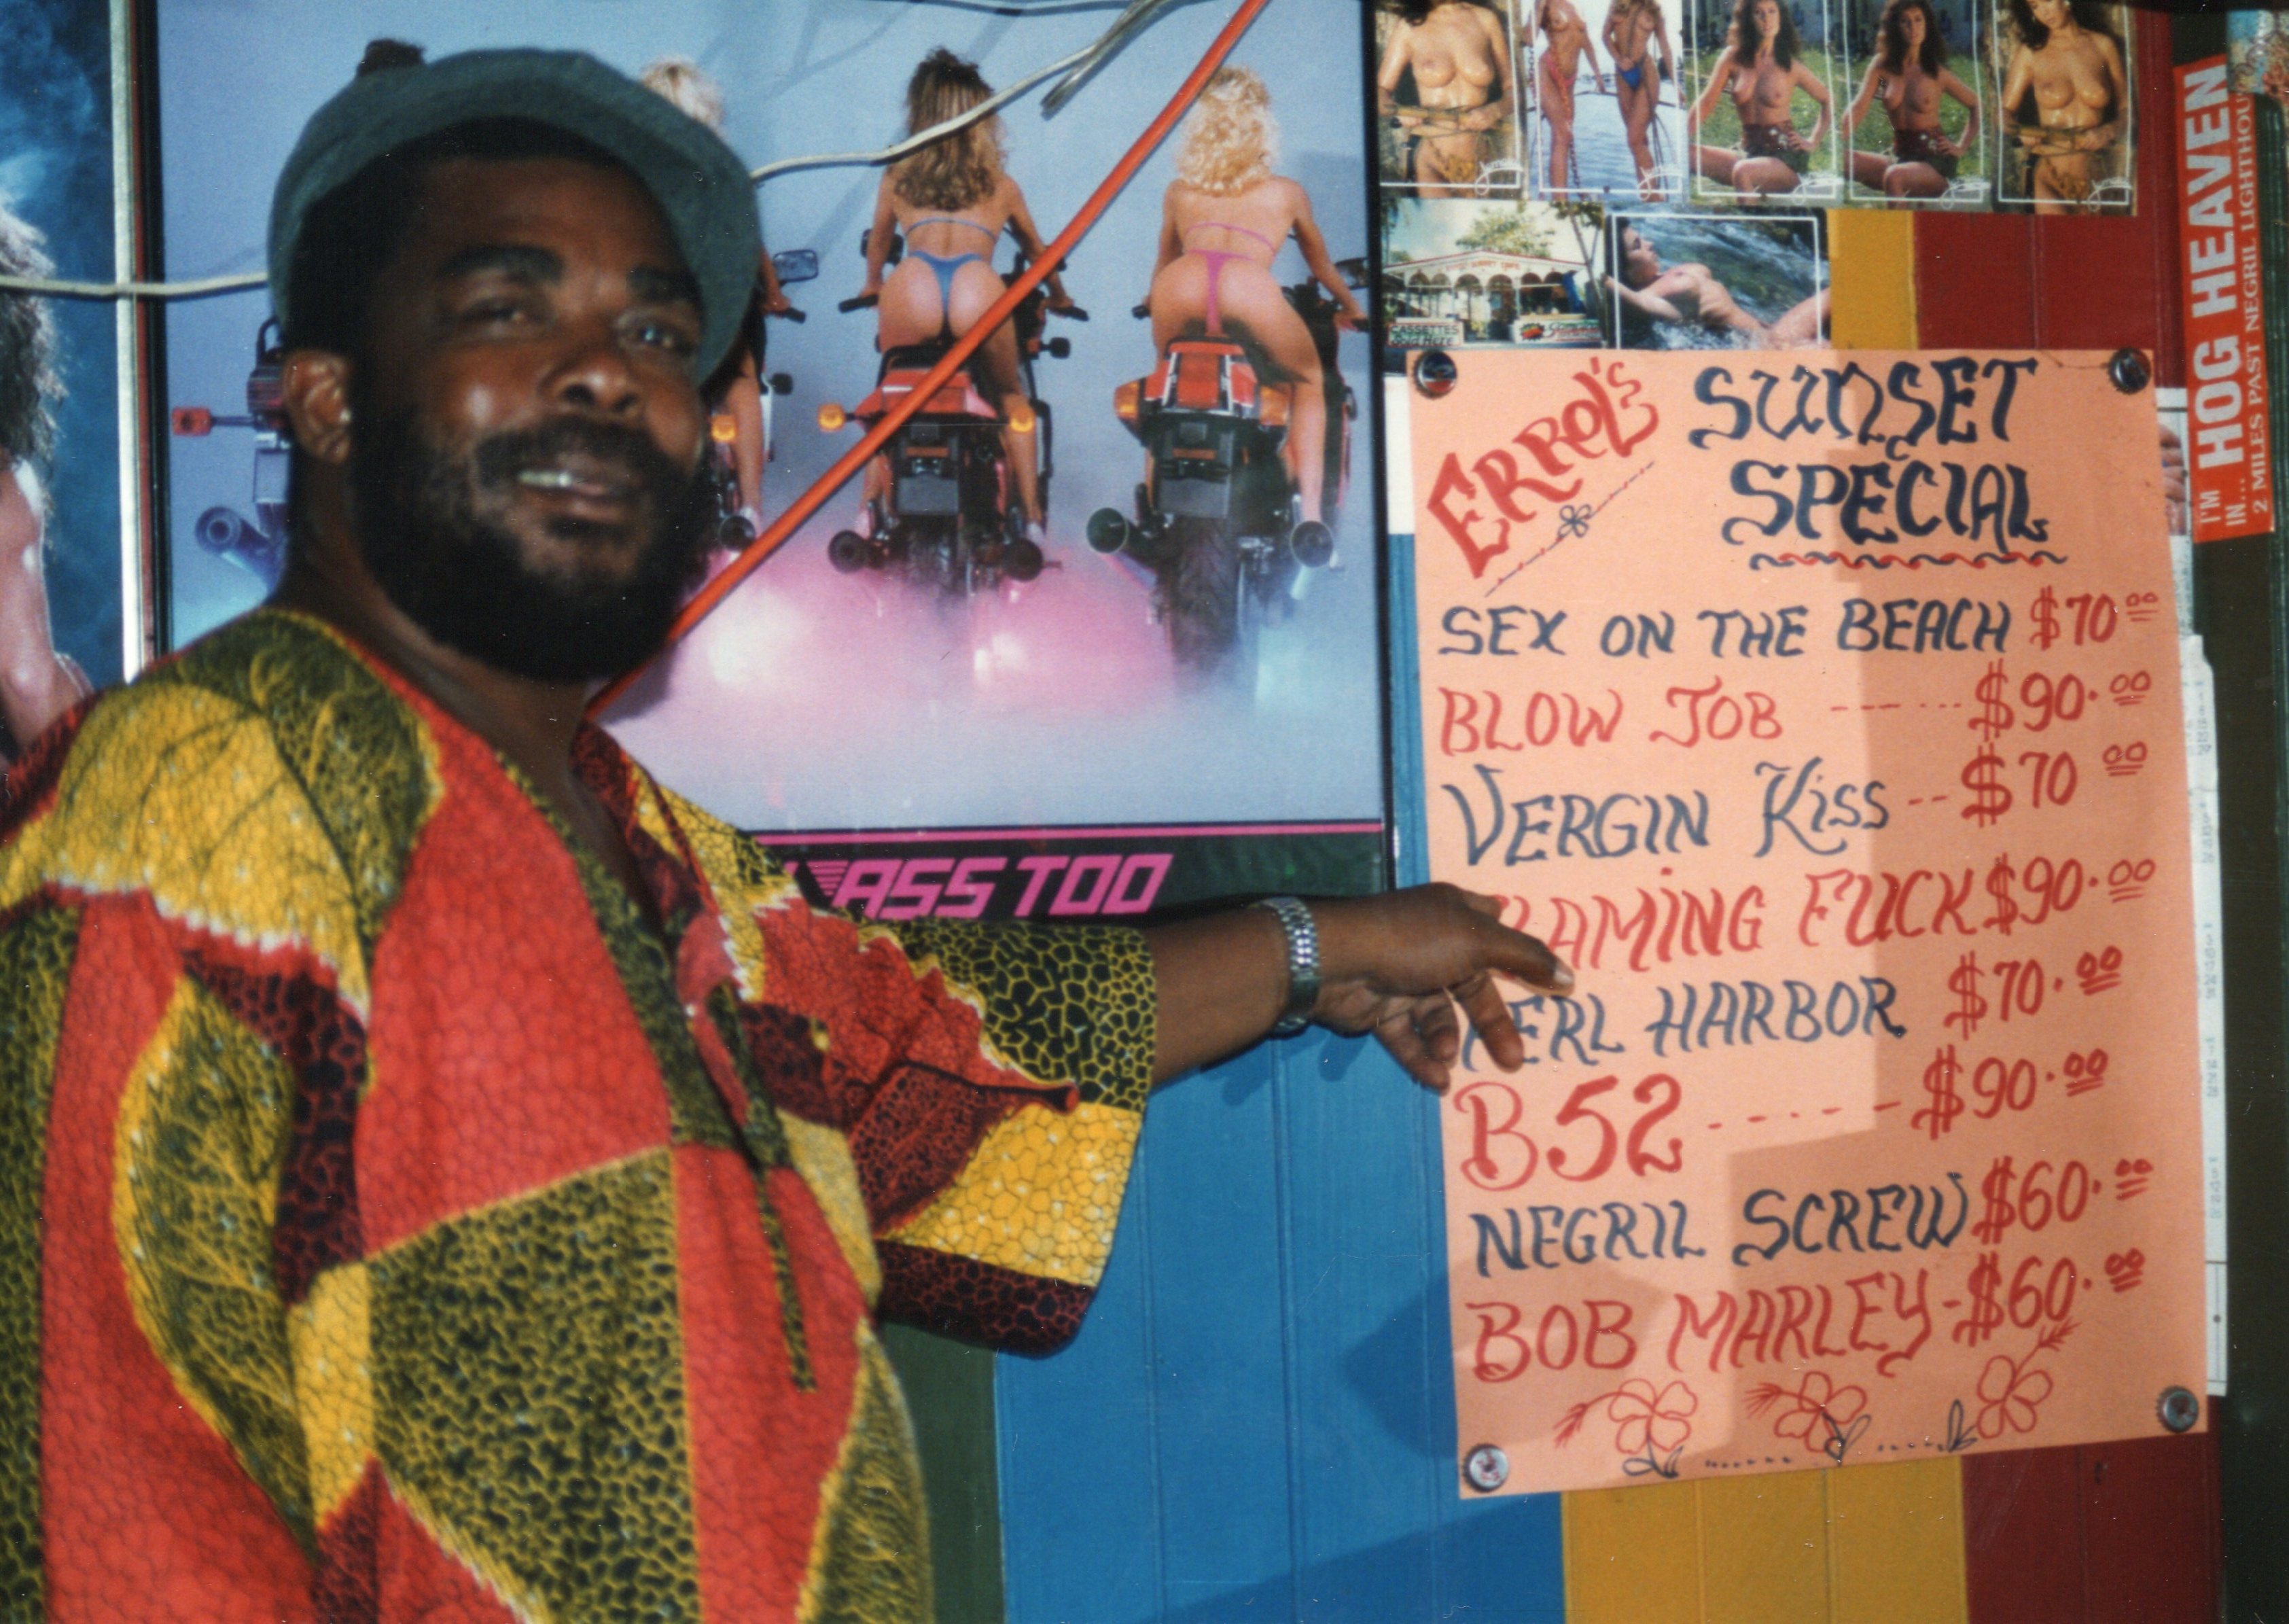 ASS TOO
CASSETTES
Sold Here
I'M HOG HEAVEN
IN...
2 MILES PAST NEGRIL LIGHTHOU
ERROL'S SUNSET
SPECIAL
SEX ON THE BEACH $70.00
BLOW JOB ---... $90.00
VERGIN KISS -- $70 00
LAMING FUCK $90.00
PERL HARBOR $70.00
B52 -.-.-- $90.00
NEGRIL SCREW $60.00
BOB MARLEY - $60.00